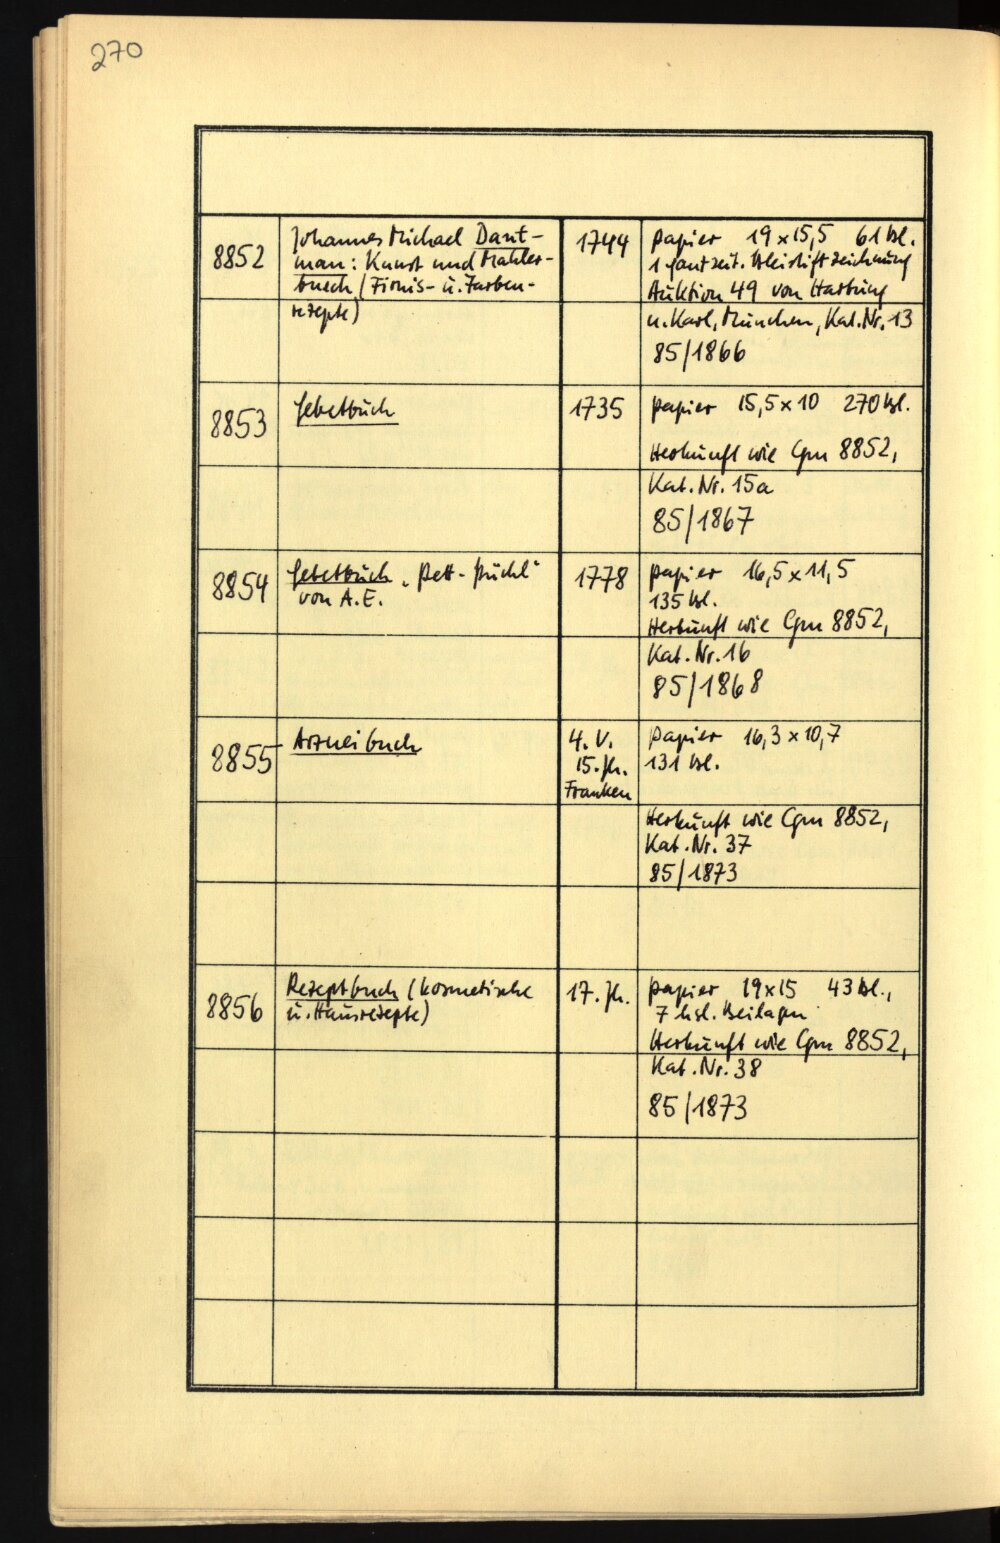 270
8852
Johannes Michael Dant-
man: Kunst und Mahler-
buech (Firnis- u. Farben-
rezepte)
1744
Papier 19 x 15,5 61 Bl.
1 ganzseit. Bleistiftzeichnung
Auktion 49 von Hartung
u. Karl, München, Kat. Nr. 13
85/1866
8853
Gebetbuch
1735
Papier 15,5 x 10 270 Bl.
Herkunft wie Cgm 8852,
Kat. Nr. 15a
85/1867
8854
Gebetbuch „Pett-Püchl“
von A.E.
1778
Papier 16,5 x 11,5
135 Bl.
Herkunft wie Cgm 8852,
Kat. Nr. 16
85/1868
8855
Arzneibuch
4. V.
15. Jh.
Franken
Papier 16,3 x 10,7
131 Bl.
Herkunft wie Cgm 8852,
Kat. Nr. 37
85/1873
8856
Rezeptbuch (kosmetische
u. Hausrezepte)
17. Jh.
Papier 19 x 15 43 Bl.,
7 hsl. Beilagen
Herkunft wie Cgm 8852,
Kat. Nr. 38
85/1873